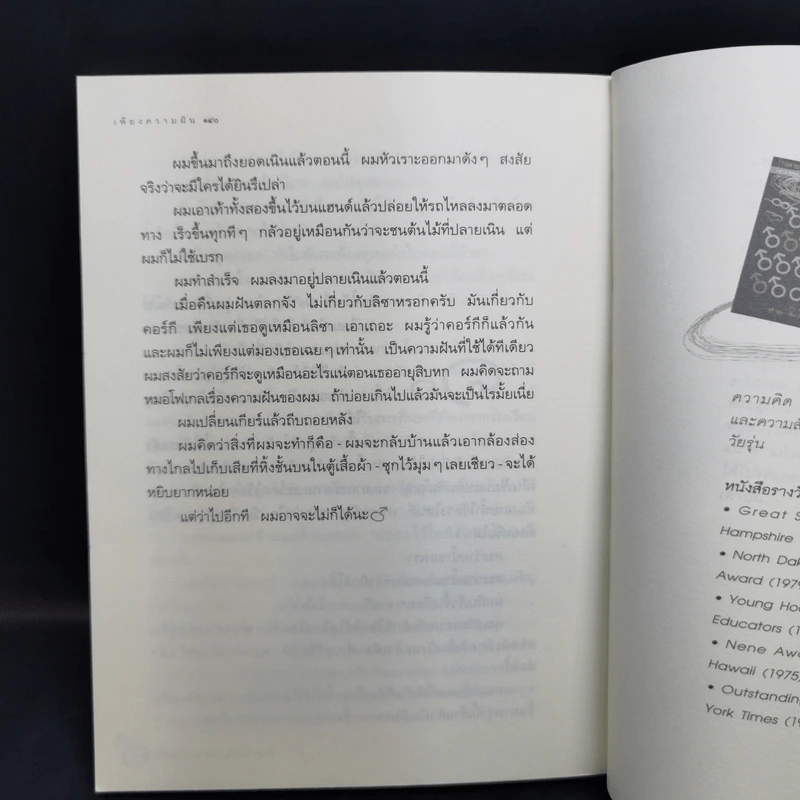 เพียงความฝัน ๑๔๐
ผมขึ้นมาถึงยอดเนินแล้วตอนนี้ ผมหัวเราะออกมาดังๆ สงสัย
จริงว่าจะมีใครได้ยินรึเปล่า
ผมเอาเท้าทั้งสองขึ้นไว้บนแฮนด์แล้วปล่อยให้รถไหลลงมาตลอด
ทาง เร็วขึ้นทุกทีๆ กลัวอยู่เหมือนกันว่าจะชนต้นไม้ที่ปลายเนิน แต่
ผมก็ไม่ใช้เบรก
ผมทำสำเร็จ ผมลงมาอยู่ปลายเนินแล้วตอนนี้
เมื่อคืนผมฝันตลกจัง ไม่เกี่ยวกับลิซาหรอกครับ มันเกี่ยวกับ
คอร์กี เพียงแต่เธอดูเหมือนลิซา เอาเถอะ ผมรู้ว่าคอร์กีก็แล้วกัน
และผมก็ไม่เพียงแต่มองเธอเฉยๆ เท่านั้น เป็นความฝันที่ใช้ได้ทีเดียว
ผมสงสัยว่าคอร์กีจะดูเหมือนอะไรแน่ตอนเธออายุสิบหก ผมคิดจะถาม
หมอโฟเกลเรื่องความฝันของผม ถ้าบ่อยเกินไปแล้วมันจะเป็นไรมั้ยเนี่ย
ผมเปลี่ยนเกียร์แล้วถีบถอยหลัง
ผมคิดว่าสิ่งที่ผมจะทำก็คือ - ผมจะกลับบ้านแล้วเอากล้องส่อง
ทางไกลไปเก็บเสียที่หิ้งชั้นบนในตู้เสื้อผ้า - ซุกไว้มุมๆ เลยเชียว - จะได้
หยิบยากหน่อย
แต่ว่าไปอีกที ผมอาจจะไม่ก็ได้นะ♂
ความคิด
และความสั
วัยรุ่น
หนังสือรางวั
• Great S
Hampshire
• North Dak
Award (1979
• Young Ho
Educators (1
• Nene Awa
Hawaii (1975)
• Outstanding
York Times (19